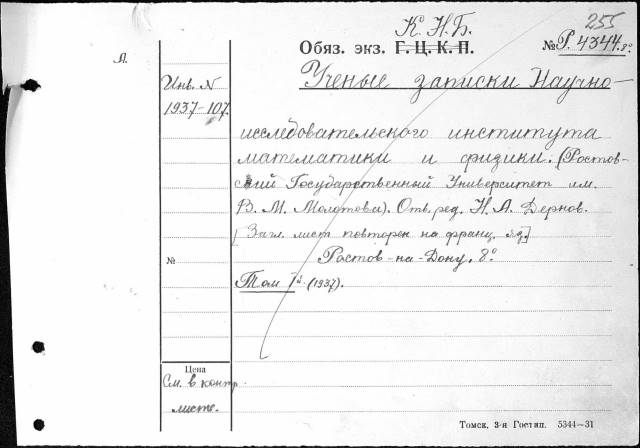 255
К. Н. Б.
Обяз. экз. Г. Ц. К. П. № Р. 4344. 8°
Л.
Инв. N
1937-107.
Ученые записки Научно-
исследовательского института
математики и физики. (Ростов-
ский Государственный Университет им.
В. М. Молотова). Отв. ред. Н. А. Дернов.
[Загл. лист повторен на франц. яз.]
Ростов-на-Дону. 8°
№
Том I (1937).
Цена
См. в контр.
листе.
Томск, 3-я Гостип. 5344—31